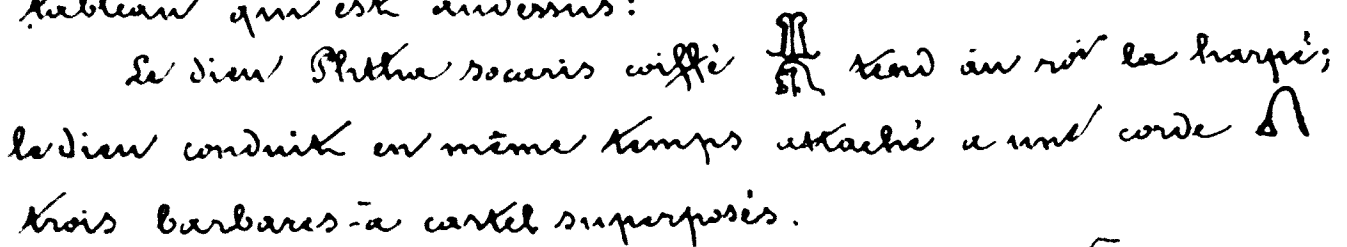 tableau qui est audessus:
Le dieu Phtha socaris coiffé tend au roi la harpé;
le dieu conduit en même temps attaché a une corde
trois barbares-à cartel superposés.